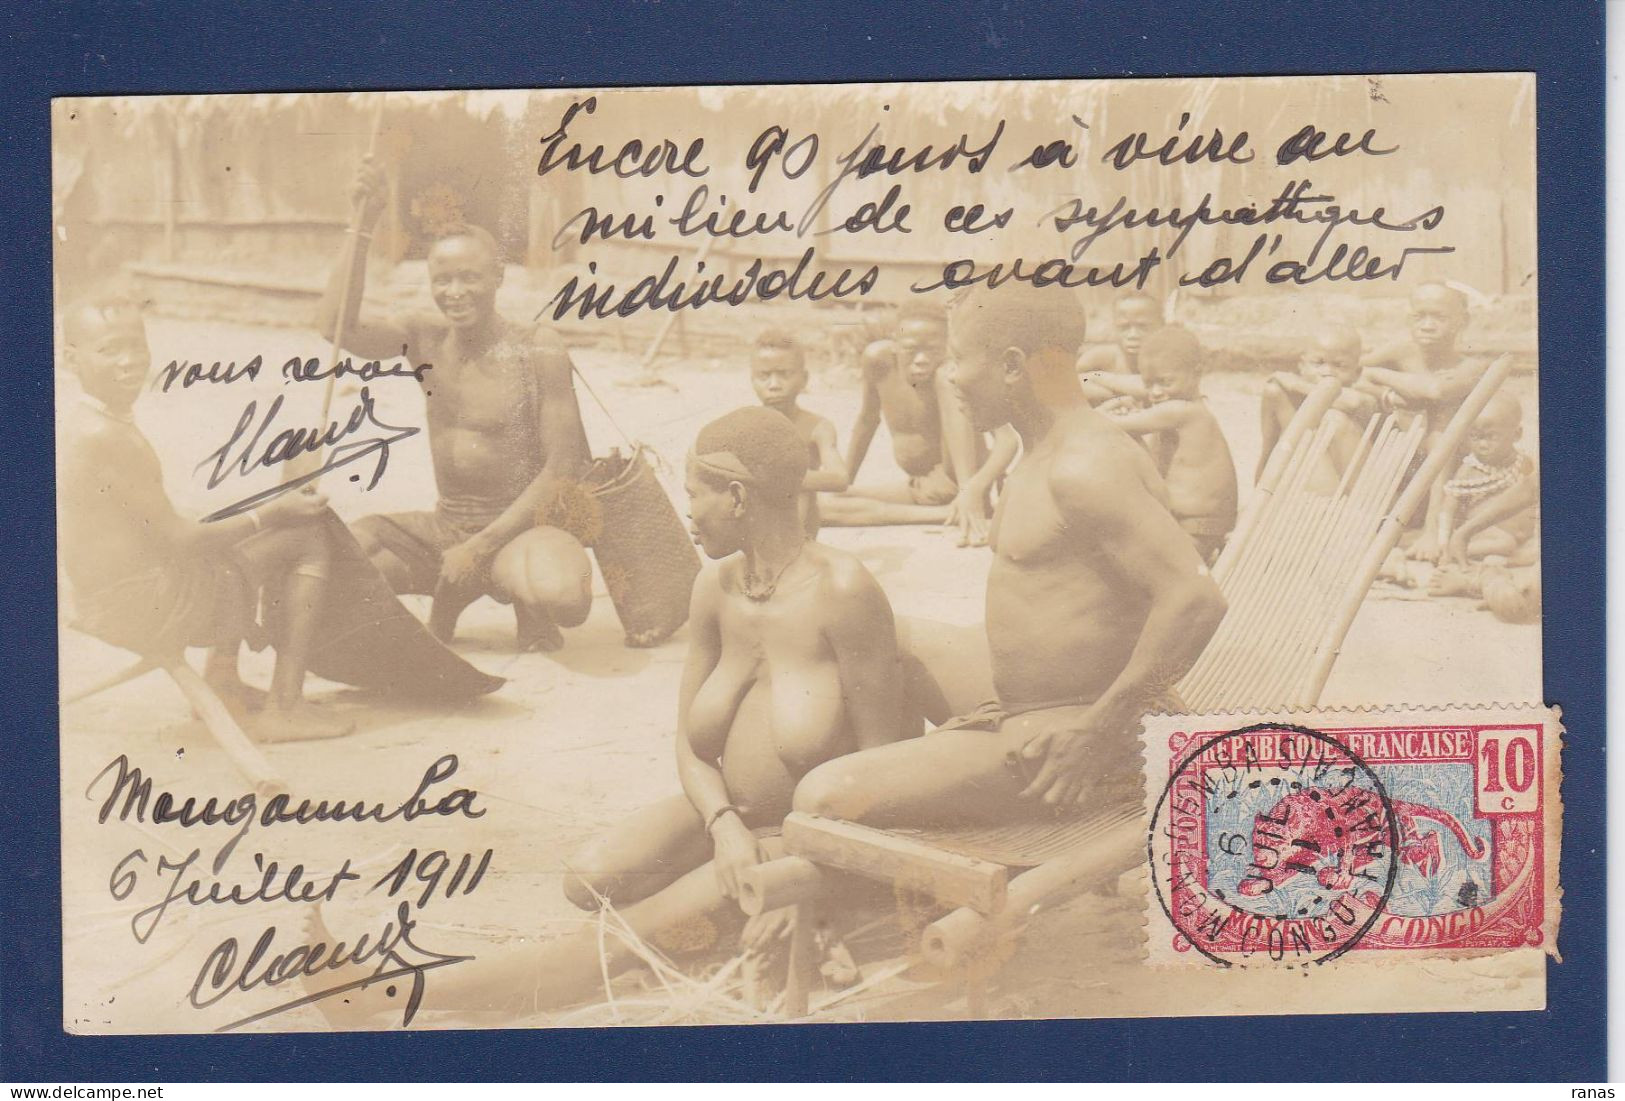 Encore 90 jours à vivre au
milieu de ces sympathiques
individus avant d'aller
vous revoir
Mongoumba
6 Juillet 1911
REPUBLIQUE FRANÇAISE
10
C
POSTES
MOYEN CONGO
MONGOUMBA
CONGO FRANCAIS
6
JUIL
11
ranas